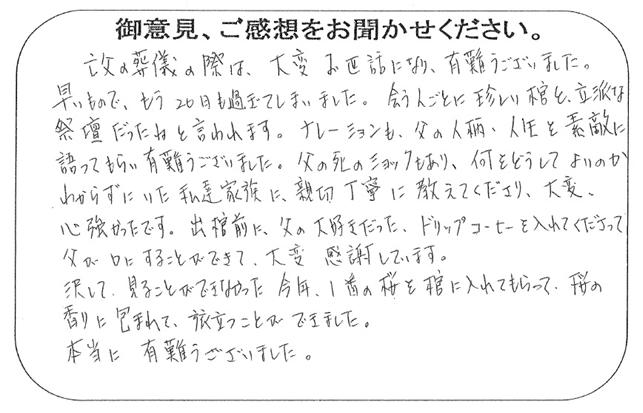 御意見、ご感想をお聞かせください。
父の葬儀の際は、大変お世話になり、有難うございました。
早いもので、もう20日も過ぎてしまいました。会う人ごとに珍しい棺と、立派な
祭壇だったねと言われます。ナレーションも、父の人柄、人生を素敵に
語ってもらい有難うございました。父の死のショックもあり、何をどうしてよいのか
わからずにいた私達家族に、親切丁寧に教えてくださり、大変、
心強かったです。出棺前に、父の大好きだった、ドリップコーヒーを入れてくださって
父が口にすることができて、大変感謝しています。
そして、見ることができなかった今年、1番の桜を棺に入れてもらって、桜の
香りに包まれて、旅立つことができました。
本当に有難うございました。